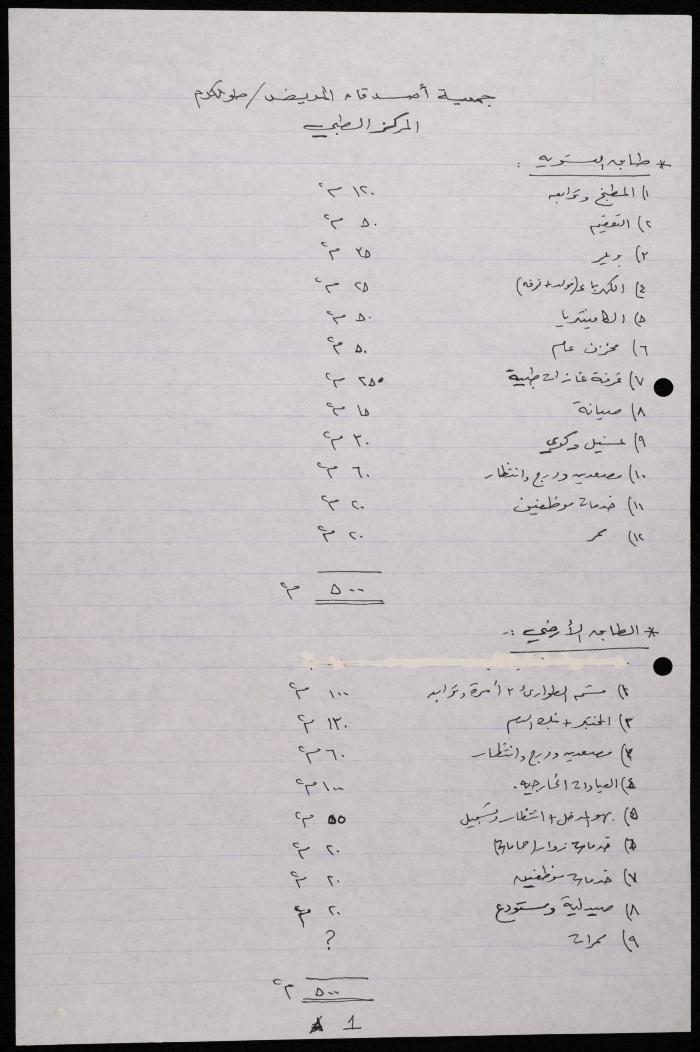 جمعية أصدقاء المريض / طولكرم
المركز الطبي
* طابق التسوية :
١) المطبخ وتوابعه ١٢٠ م٢
٢) التعقيم ٥٠ م٢
٣) بويلر ٣٥ م٢
٤) الكهرباء (مولد + غرفة) ٢٥ م٢
٥) الكافيتيريا ٥٠ م٢
٦) مخزن عام ٥٠ م٢
٧) غرفة غازات طبية ٢٥ م٢
٨) صيانة ١٥ م٢
٩) غسيل وكوي ٣٠ م٢
١٠) مصعدين ودرج وانتظار ٦٠ م٢
١١) خدمات موظفين ٢٠ م٢
١٢) ممر ٢٠ م٢
٥٠٠ م٢
* الطابق الأرضي :-
١) قسم الطوارئ ٢ أسرة وتوابعه ١٠٠ م٢
٢) المختبر + بنك الدم ١٣٠ م٢
٣) مصعدين ودرج وانتظار ٦٠ م٢
٤) العيادات الخارجية. ١٠٠ م٢
٥) بهو المدخل + انتظار وتسجيل ٥٥ م٢
٦) خدمات زوار (حمامات) ٢٠ م٢
٧) خدمات موظفين ٢٠ م٢
٨) صيدلية ومستودع ٢٠ م٢
٩) ممرات ?
٥٠٠ م٢
1